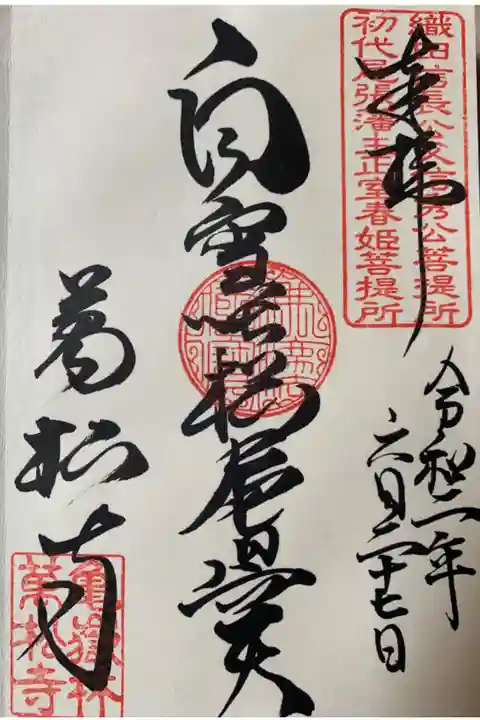 奉拝
織田信長公父信秀公菩提所
初代尾張藩主正室春姫菩提所
令和二年
六月二十七日
白雪吒枳尼真天
萬松寺
亀嶽林
萬松寺